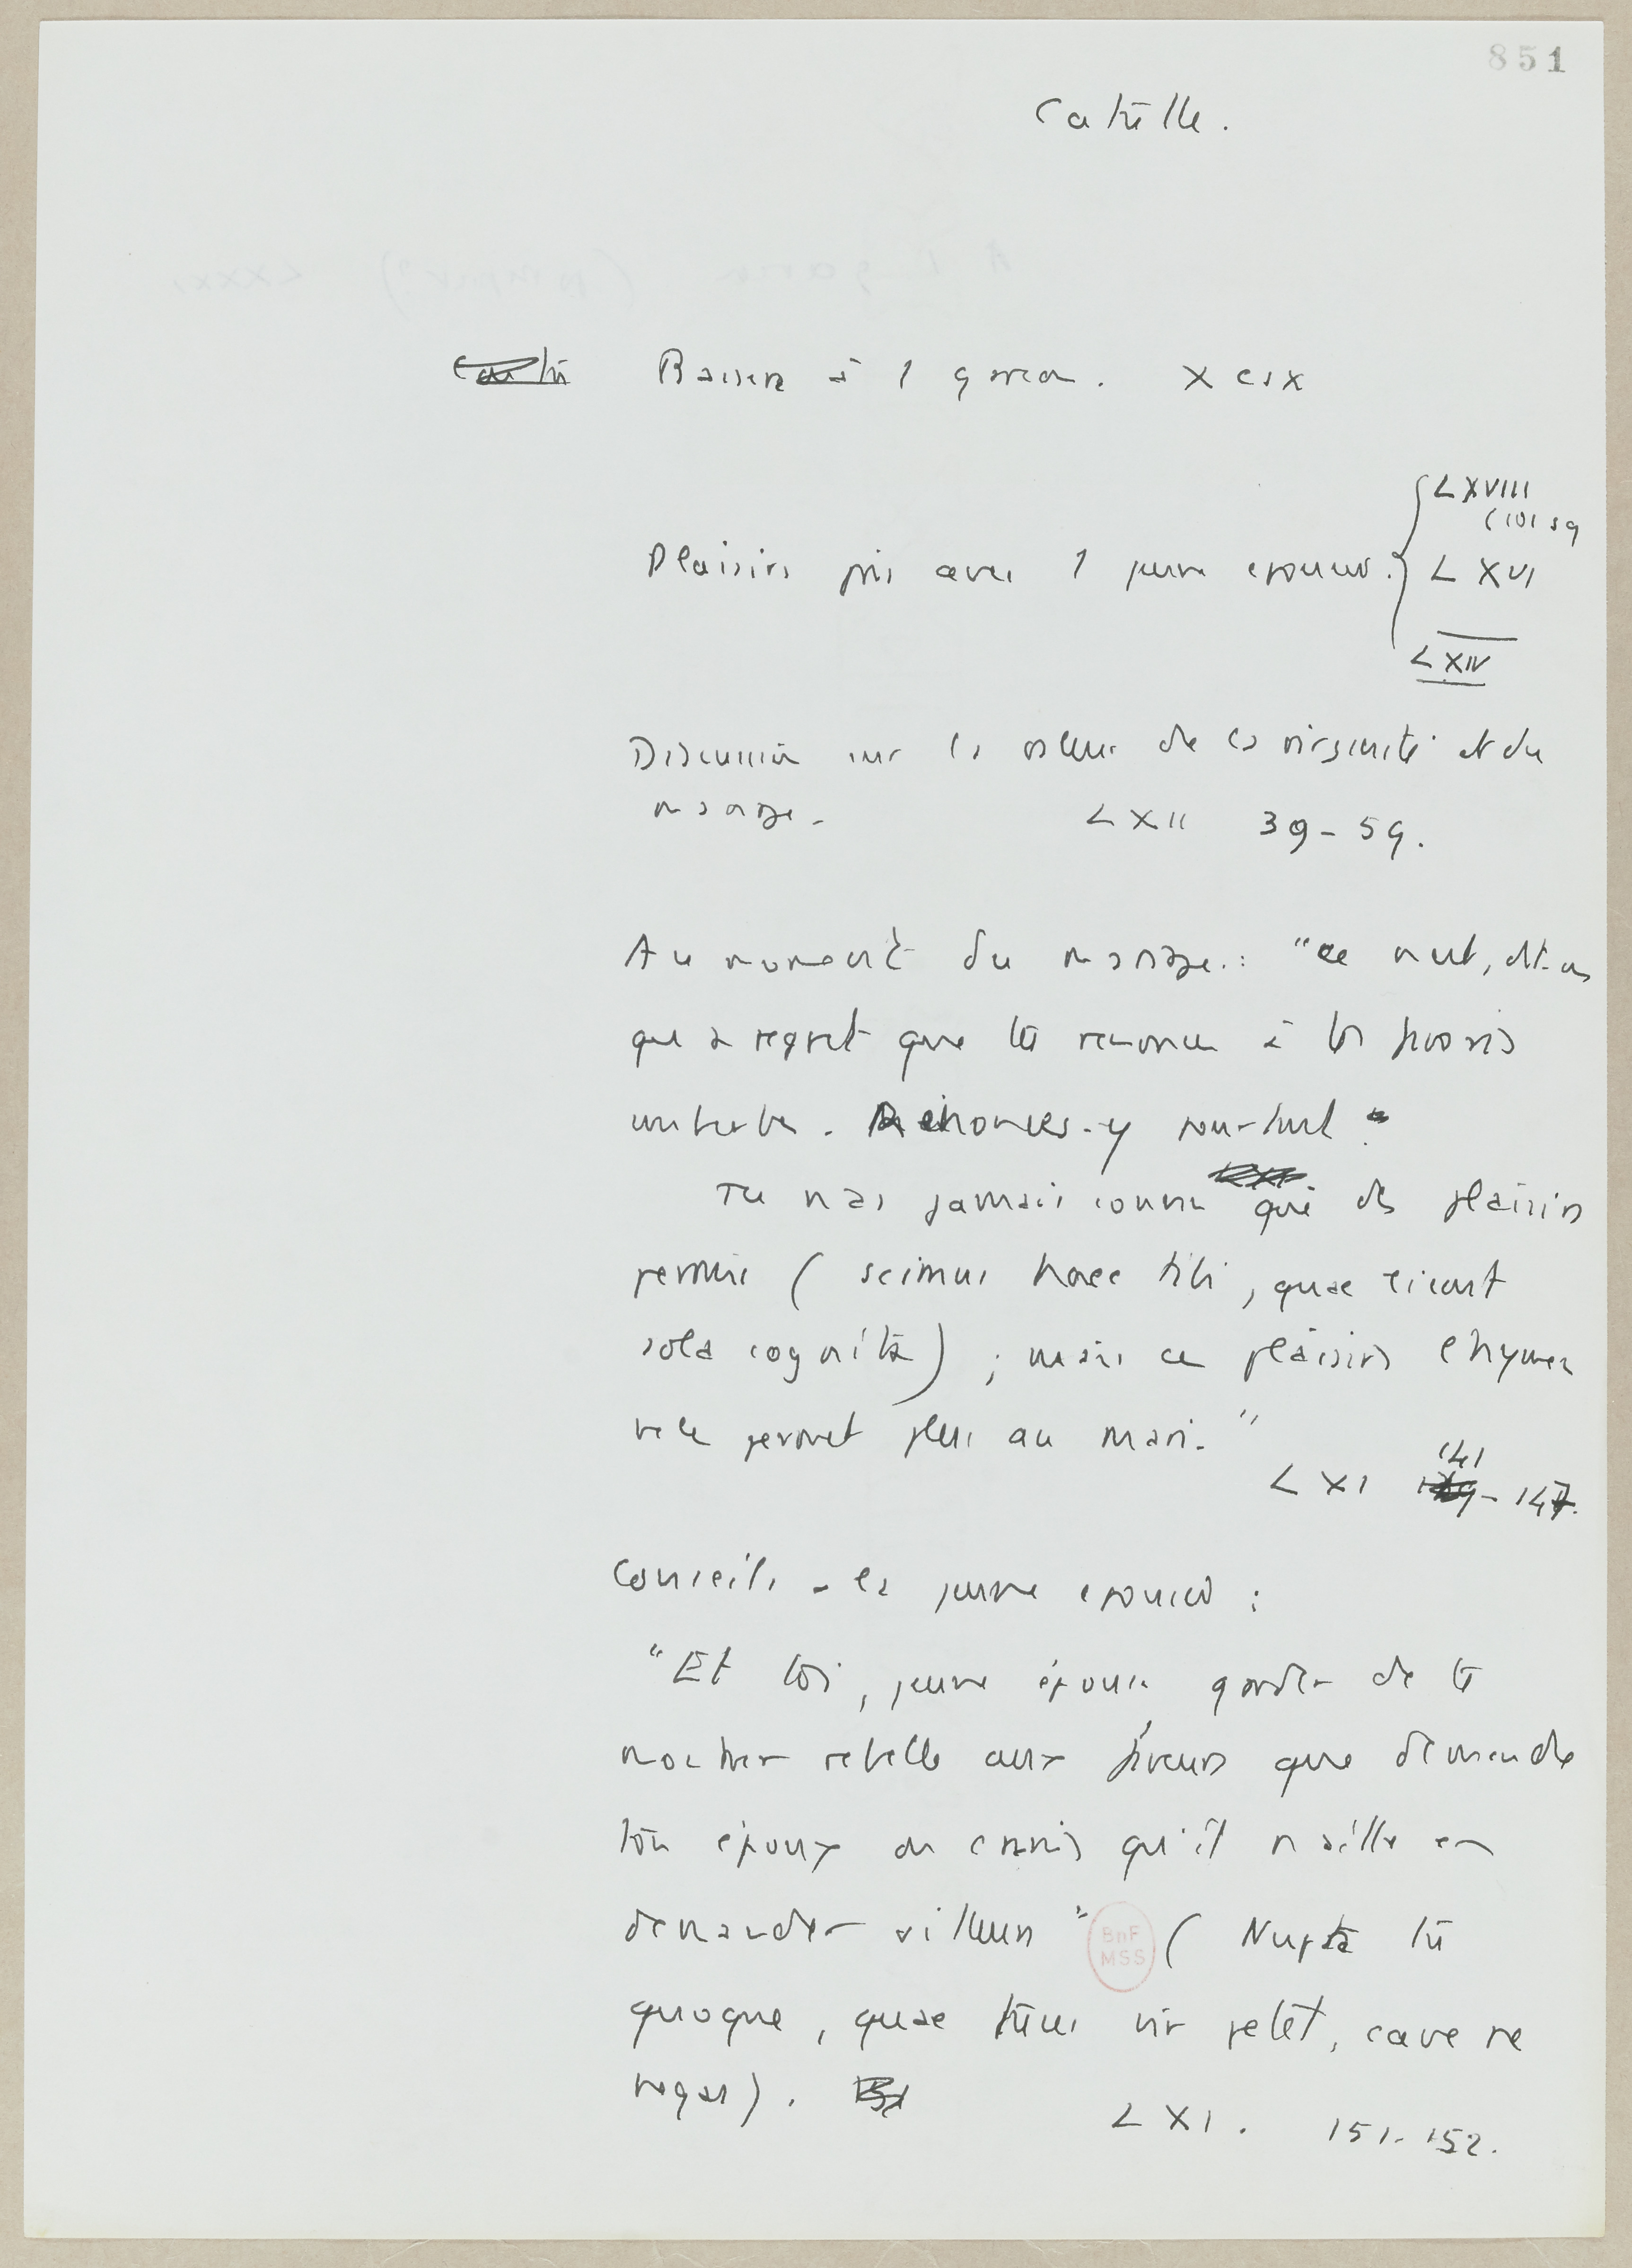 851
Catulle.
Baisers à 1 garçon. XCIX
LXVIII
(101 sq
Plaisirs pris avec 1 jeune épouse. LXVI
LXIV
Discussion sur la valeur de la virginité et du
mariage. LXII 39-59.
Au moment du mariage : "ce n'est, dit-on
qu'à regret que tu renonces à tes favoris
imberbes. Renonces-y pourtant."
Tu n'as jamais connu que des plaisirs
permis (scimus haec tibi, quae licent
sola cognita) ; mais ces plaisirs l'hymen
ne le permet plus au mari."
LXI 141-147.
Conseils à la jeune épouse :
"Et toi, jeune épouse garde de te
montrer rebelle aux faveurs que demande
ton époux ou crains qu'il n'aille en
demander ailleurs" (Nupta tu
BnF
MSS
quoque, quae tuus vir petet, cave ne
neges). LXI. 151-152.